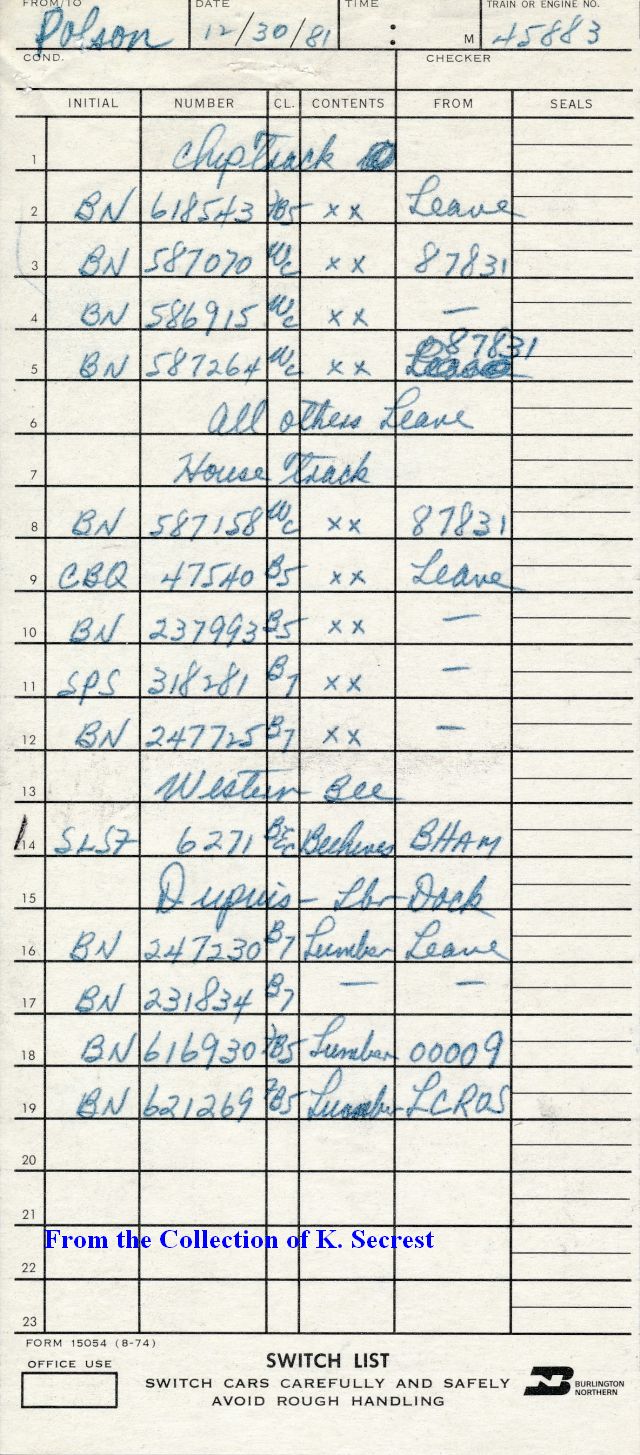 FROM/TO DATE TIME TRAIN OR ENGINE NO.
Polson 12/30/81 : M 45883
COND. CHECKER
INITIAL NUMBER CL. CONTENTS FROM SEALS
1 Chip Track
2 BN 618543 B5 xx Leave
3 BN 587070 Wc xx 87831
4 BN 586915 Wc xx —
5 BN 587264 Wc xx 87831
6 All others Leave
7 House Track
8 BN 587158 Wc xx 87831
9 CBQ 47540 B5 xx Leave
10 BN 237993 B5 xx —
11 SPS 318281 B7 xx —
12 BN 247725 B7 xx —
13 Western Bee
14 SLSF 6271 Beehives BHAM
15 Dupuis - Lbr Dock
16 BN 247230 B7 Lumber Leave
17 BN 231834 B7 — —
18 BN 616930 B5 Lumber 00009
19 BN 621269 B5 Lumber LCROS
20
21
From the Collection of K. Secrest
22
23
FORM 15054 (8-74)
OFFICE USE SWITCH LIST
SWITCH CARS CAREFULLY AND SAFELY
AVOID ROUGH HANDLING
BN BURLINGTON NORTHERN